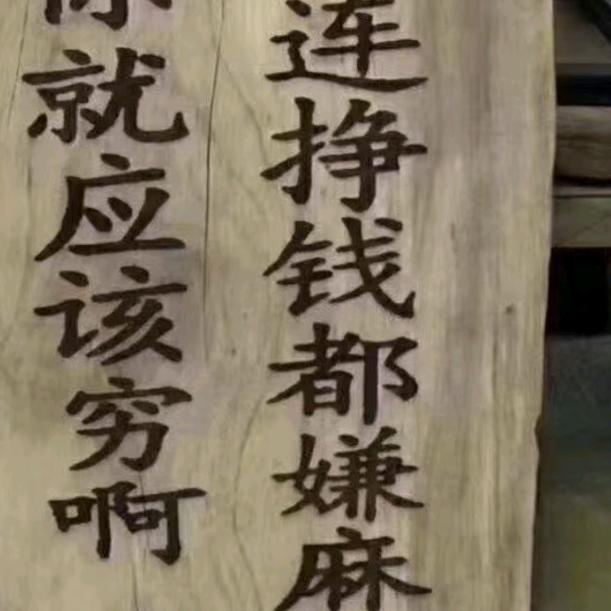 连挣钱都嫌麻
你就应该穷啊